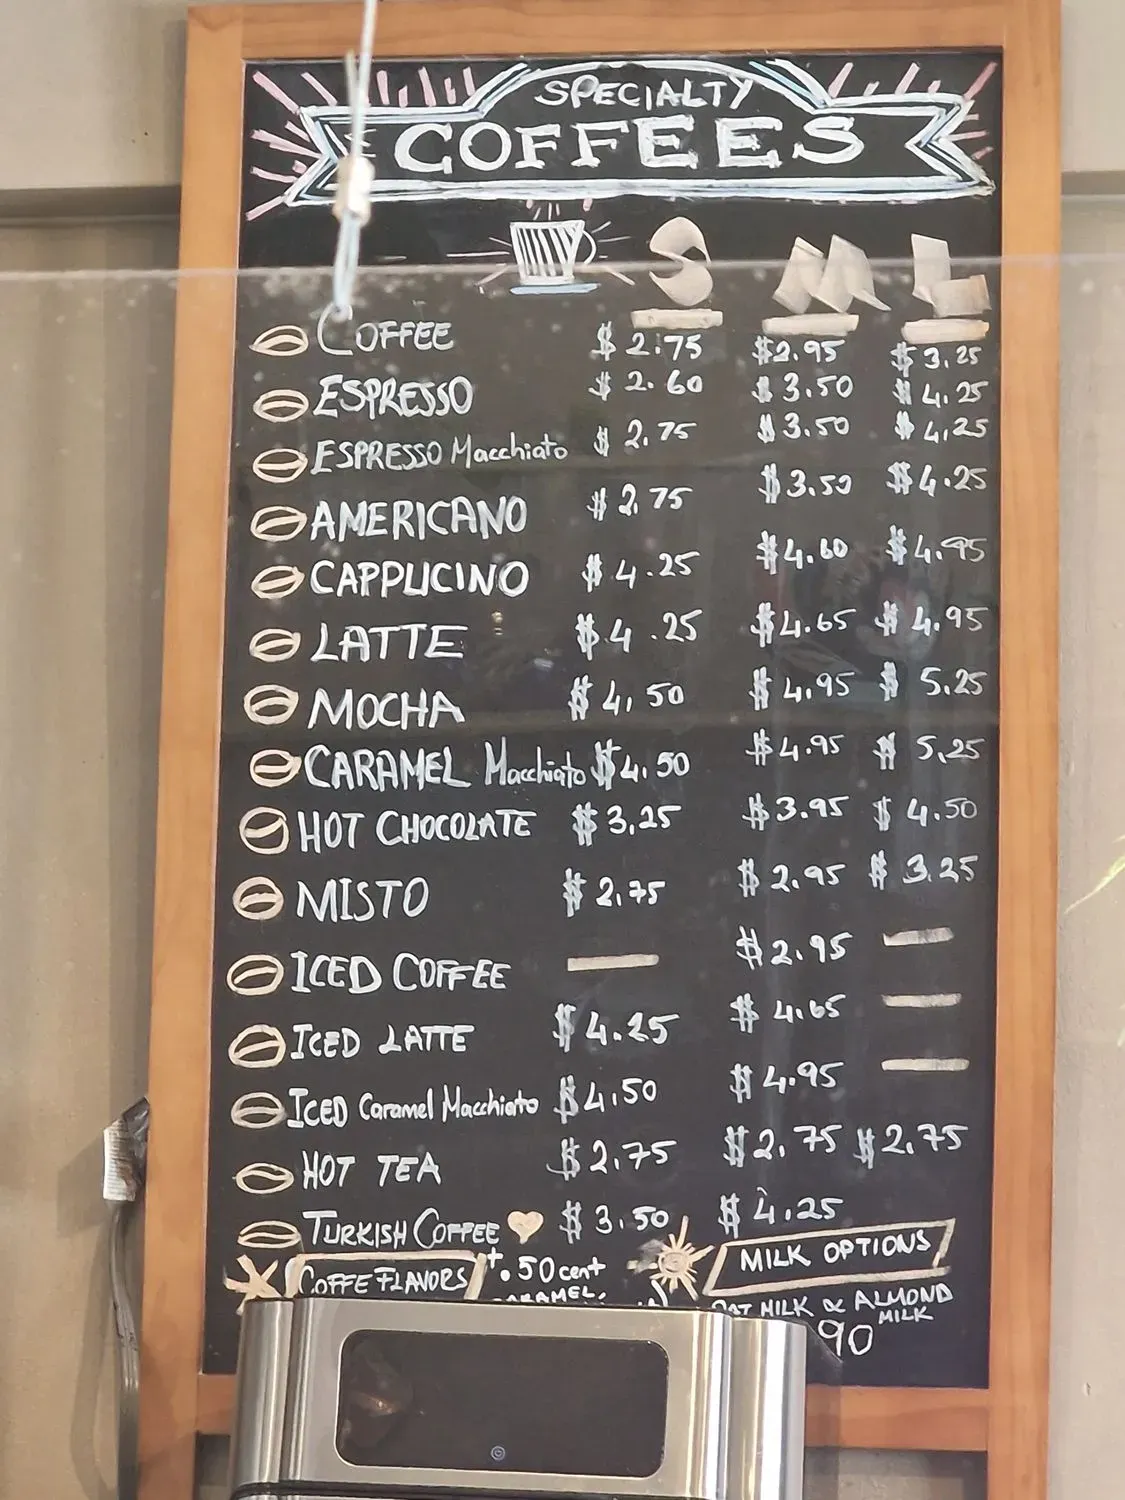 SPECIALTY
COFFEES
S M L
COFFEE $2.75 $2.95 $3.25
ESPRESSO $2.60 $3.50 $4.25
ESPRESSO Macchiato $2.75 $3.50 $4,25
AMERICANO $2.75 $3.50 $4.25
CAPPUCINO $4.25 $4.60 $4.95
LATTE $4.25 $4.65 $4.95
MOCHA $4,50 $4.95 $5.25
CARAMEL Macchiato $4.50 $4.95 $5,25
HOT CHOCOLATE $3.25 $3.95 $4.50
MISTO $2.75 $2.95 $3.25
ICED COFFEE — $2.95 —
ICED LATTE $4.25 $4.65 —
ICED Caramel Macchiato $4.50 $4.95 —
HOT TEA $2.75 $2.75 $2.75
TURKISH COFFEE $3.50 $4.25
COFFE FLAVORS + .50 cent
MILK OPTIONS
MILK & ALMOND
MILK
90